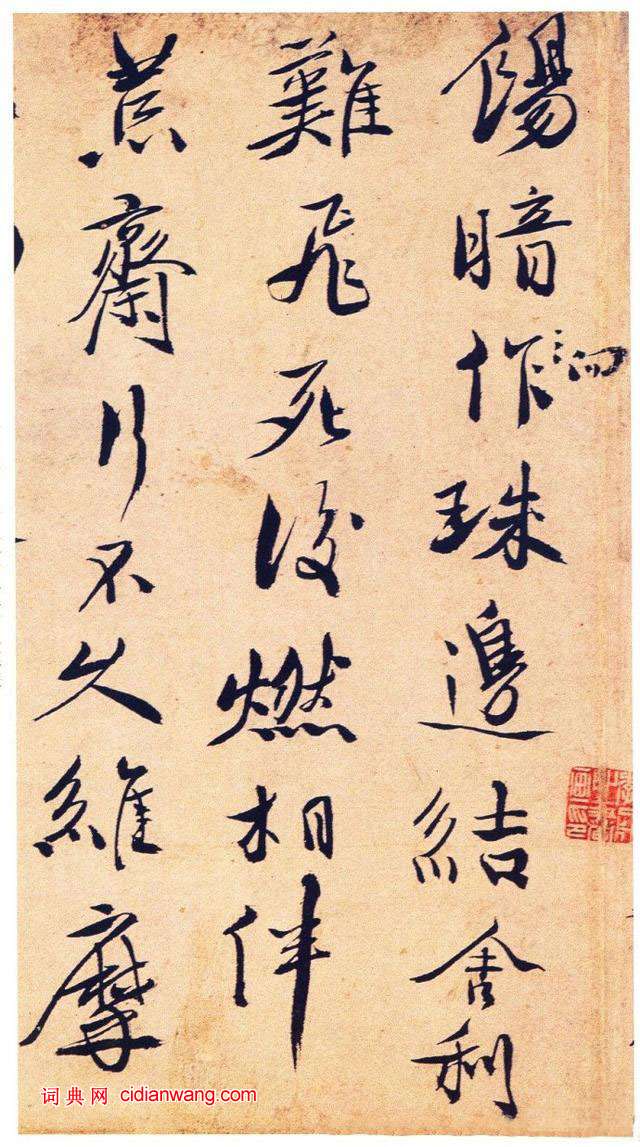 傷暗作珠邊結舍利
難飛死後燃相伴
齋行不久維摩
词典网 cidianwang.com